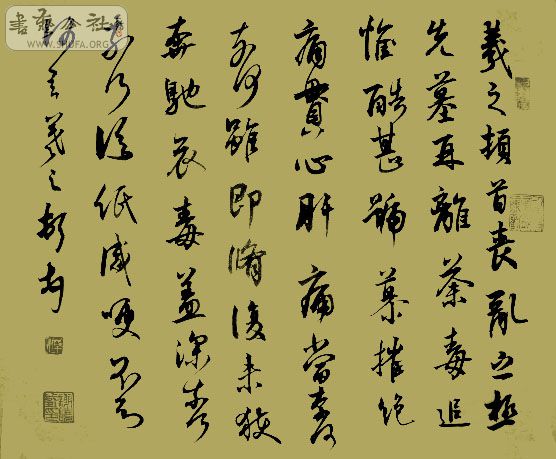 羲之頓首喪亂之極
先墓再離荼毒追
惟酷甚號慕摧絶
痛貫心肝痛當奈何
奈何雖即脩復未獲
奔馳哀毒益深奈何
奈何臨紙感哽不知
何言羲之頓首
WWW.SHUFA.ORG